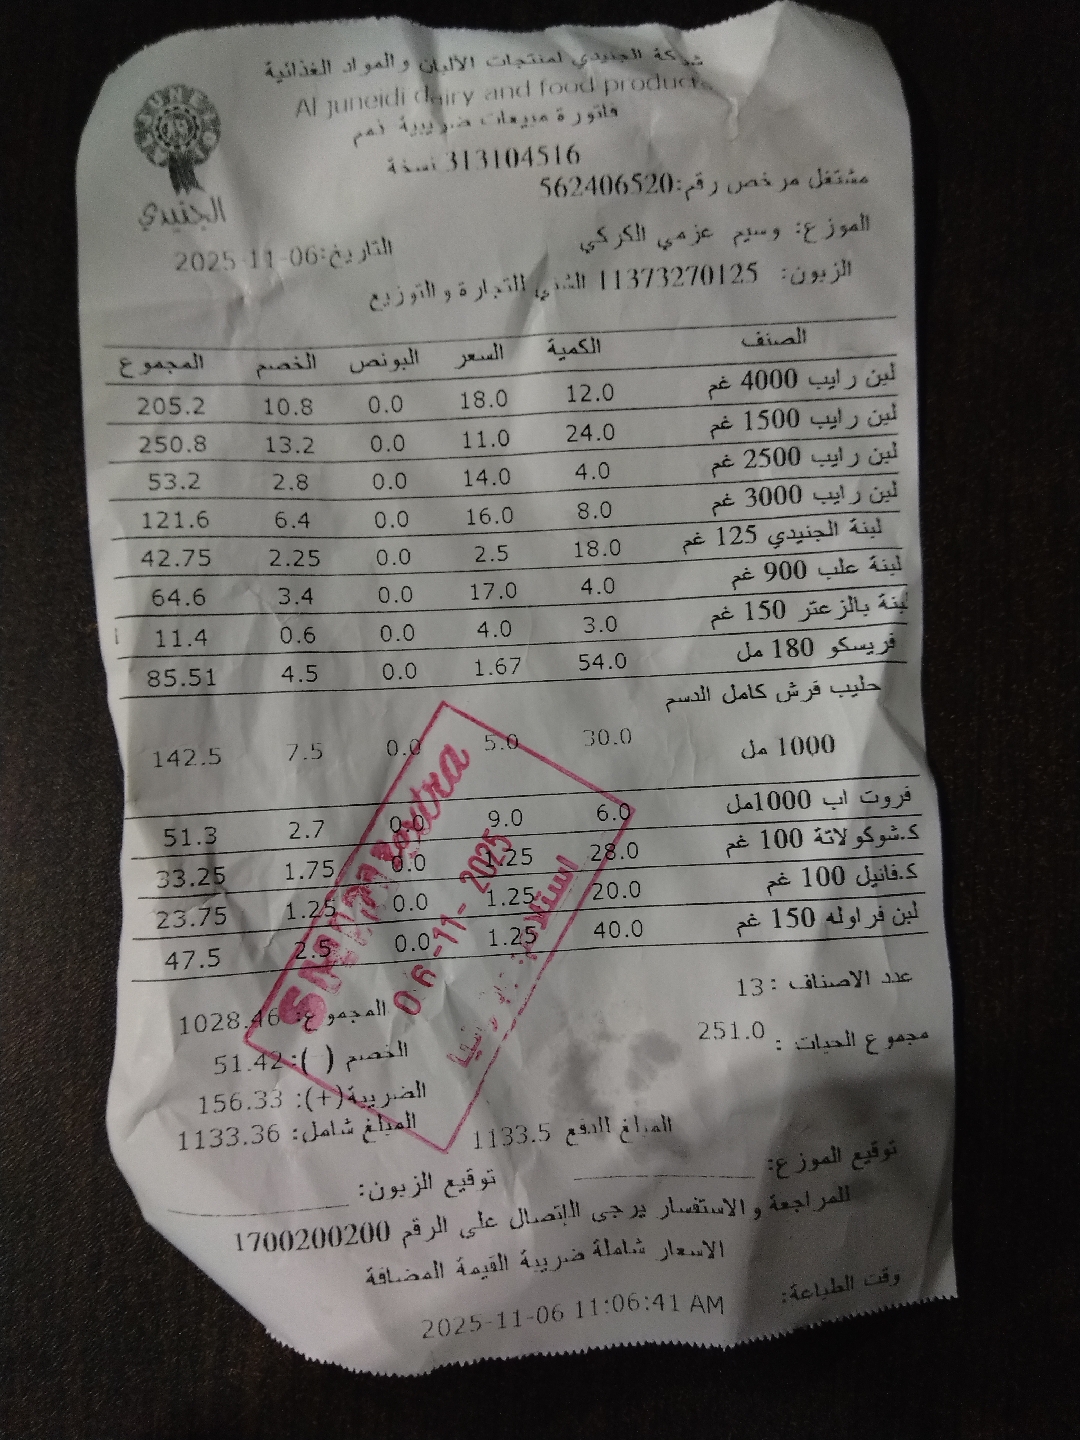 شركة الجنيدي لمنتجات الألبان والمواد الغذائية
Al juneidi dairy and food products
فاتورة مبيعات ضريبية ذمم
313104516 نسخة
مشتغل مرخص رقم:562406520
الجنيدي
الموزع: وسيم عزمي الكركي
التاريخ:2025-11-06
الزبون: 11373270125 الشني للتجارة والتوزيع
الصنف الكمية السعر البونص الخصم المجموع
لبن رايب 4000 غم 12.0 18.0 0.0 10.8 205.2
لبن رايب 1500 غم 24.0 11.0 0.0 13.2 250.8
لبن رايب 2500 غم 4.0 14.0 0.0 2.8 53.2
لبن رايب 3000 غم 8.0 16.0 0.0 6.4 121.6
لبنة الجنيدي 125 غم 18.0 2.5 0.0 2.25 42.75
لبنة علب 900 غم 4.0 17.0 0.0 3.4 64.6
لبنة بالزعتر 150 غم 3.0 4.0 0.0 0.6 11.4
فريسكو 180 مل 54.0 1.67 0.0 4.5 85.51
حليب فرش كامل الدسم
1000 مل 30.0 5.0 0.0 7.5 142.5
فروت اب 1000مل 6.0 9.0 0.0 2.7 51.3
ك.شوكولاتة 100 غم 28.0 1.25 0.0 1.75 33.25
ك.فانيل 100 غم 20.0 1.25 0.0 1.25 23.75
لبن فراوله 150 غم 40.0 1.25 0.0 2.5 47.5
06-11-2025
استلام
عدد الاصناف : 13
المجموع: 1028.46
مجموع الحبات : 251.0
الخصم ( ): 51.42
الضريبة(+): 156.33
المبلغ شامل: 1133.36
المبلغ للدفع 1133.5
توقيع الموزع:
توقيع الزبون:
للمراجعة والاستفسار يرجى الإتصال على الرقم 1700200200
الاسعار شاملة ضريبة القيمة المضافة
وقت الطباعة:
2025-11-06 11:06:41 AM